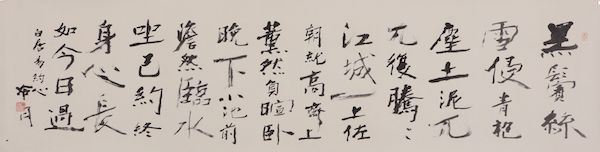 黑鬢絲
雪侵青袍
塵土泥兀
兀復騰〻
江城一上佐
朝就高齋上
薰然負暄卧
晚下小池前
澹然臨水
坐已約終
身心長
如今日過
白居易約心